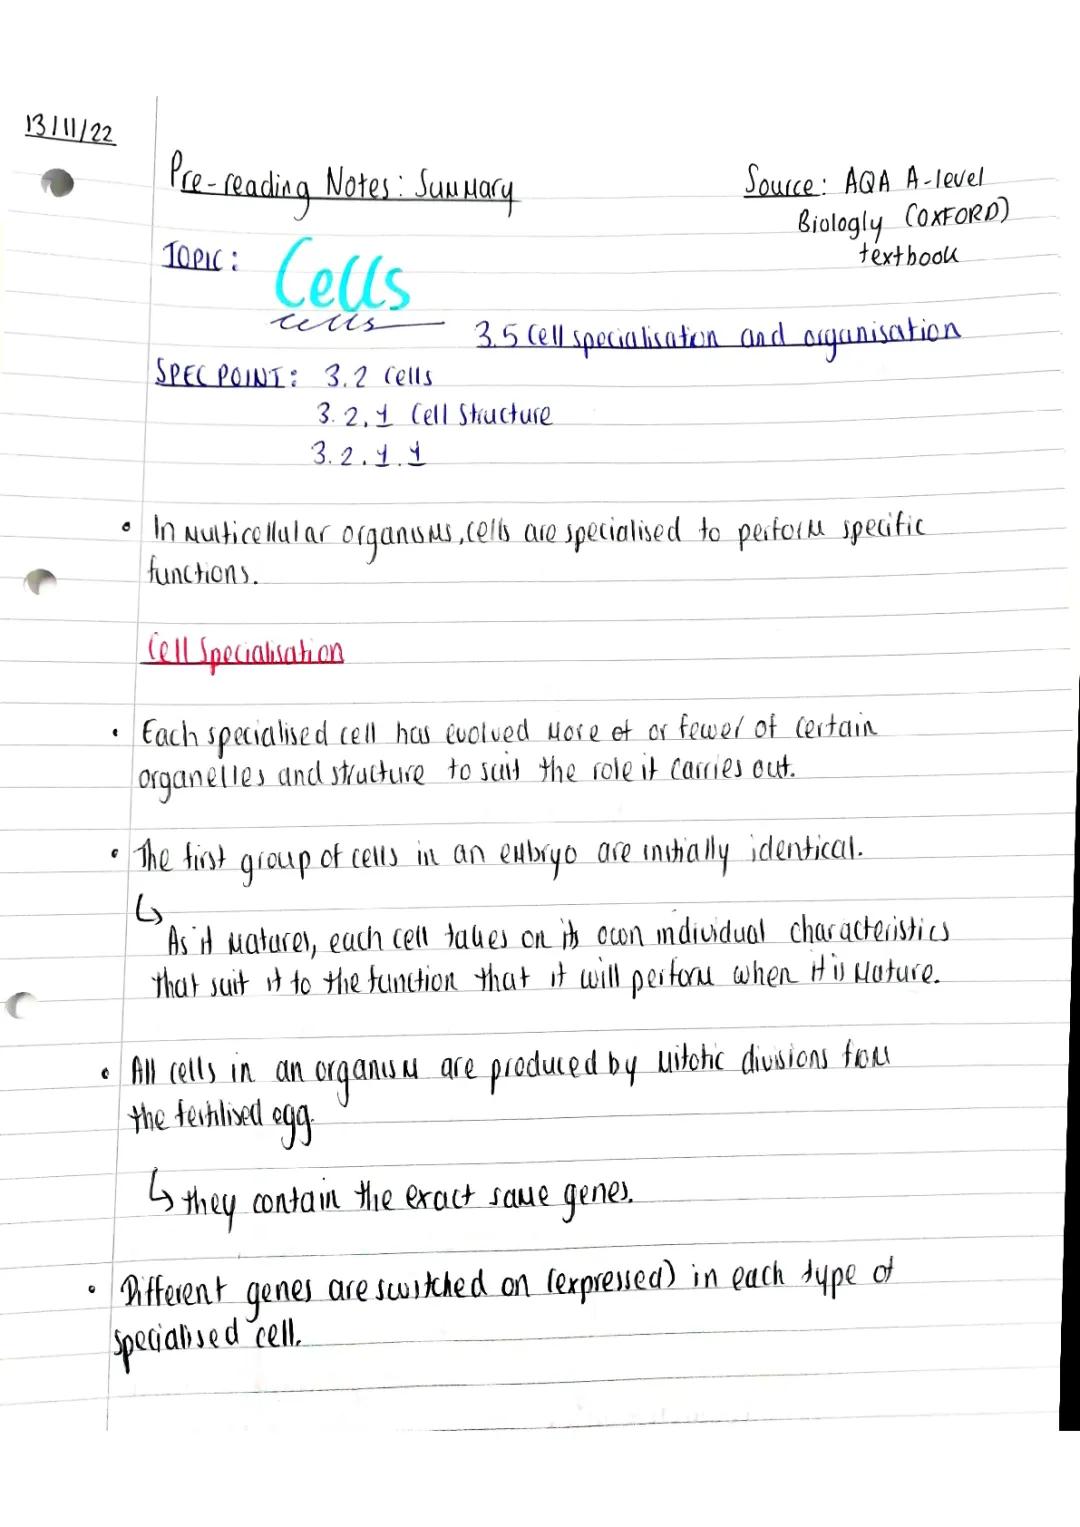 13/11/22
Pre-reading Notes: Summary
Source: AQA A-level
Biologly (OXFORD)
textbook
TOPIC: Cells
cells
3.5 Cell specialisation and organisation
SPEC POINT: 3.2 Cells
3.2.1 Cell Structure
3.2.1.1
• In multicellular organisms, cells are specialised to perform specific
functions.
Cell Specialisation
• Each specialised cell has evolved more of or fewer of certain
organelles and structure to suit the role it carries out.
• The first group of cells in an embryo are initially identical.
↳
As it matures, each cell takes on its own individual characteristics
that suit it to the function that it will perform when it is mature.
• All cells in an organism are produced by mitotic divisions from
the fertilised egg.
↳ they contain the exact same genes.
• Different genes are switched on (expressed) in each type of
specialised cell.